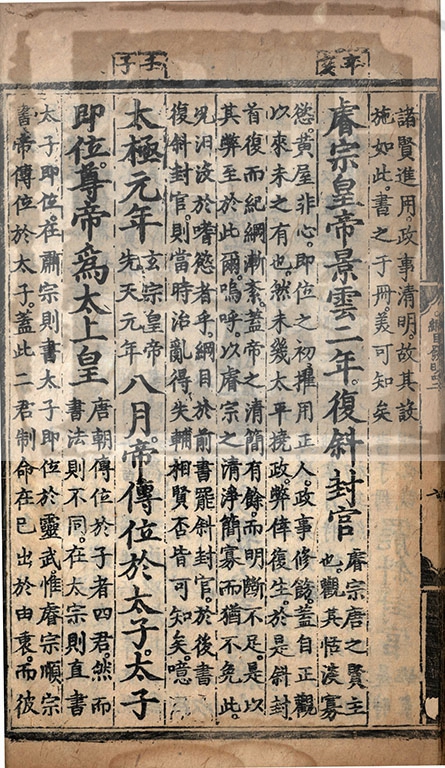 辛亥
壬子
諸賢進用。政事清明。故其設
施如此。書之于冊。美可知矣
睿宗皇帝景雲二年。復斜封官
睿宗唐之賢主
也。觀其恬淡寡
慾。黃屋非心。即位之初擢用正人。政事修飭。蓋自正觀
以來未之有也。然未幾太平撓政。弊倖復生。於是斜封
首復而紀綱漸紊。蓋帝之清簡有餘。而明斷不足。是以
其弊至於此爾。嗚呼。以睿宗之清淨簡寡而猶不免此。
況汨沒於嗜慾者乎。綱目於前書罷斜封官。於後書
復斜封官。則當時治亂得失輔相賢否皆可知矣。噫
太極元年
玄宗皇帝
先天元年
八月。帝傳位於太子。太子
即位。尊帝爲太上皇
唐朝傳位於子者四君。然而
書法則不同。在太宗則直書
太子即位。在肅宗則書太子即位於靈武。惟睿宗順宗
書帝傳位於太子。蓋此二君制命在已出於由衷。而彼